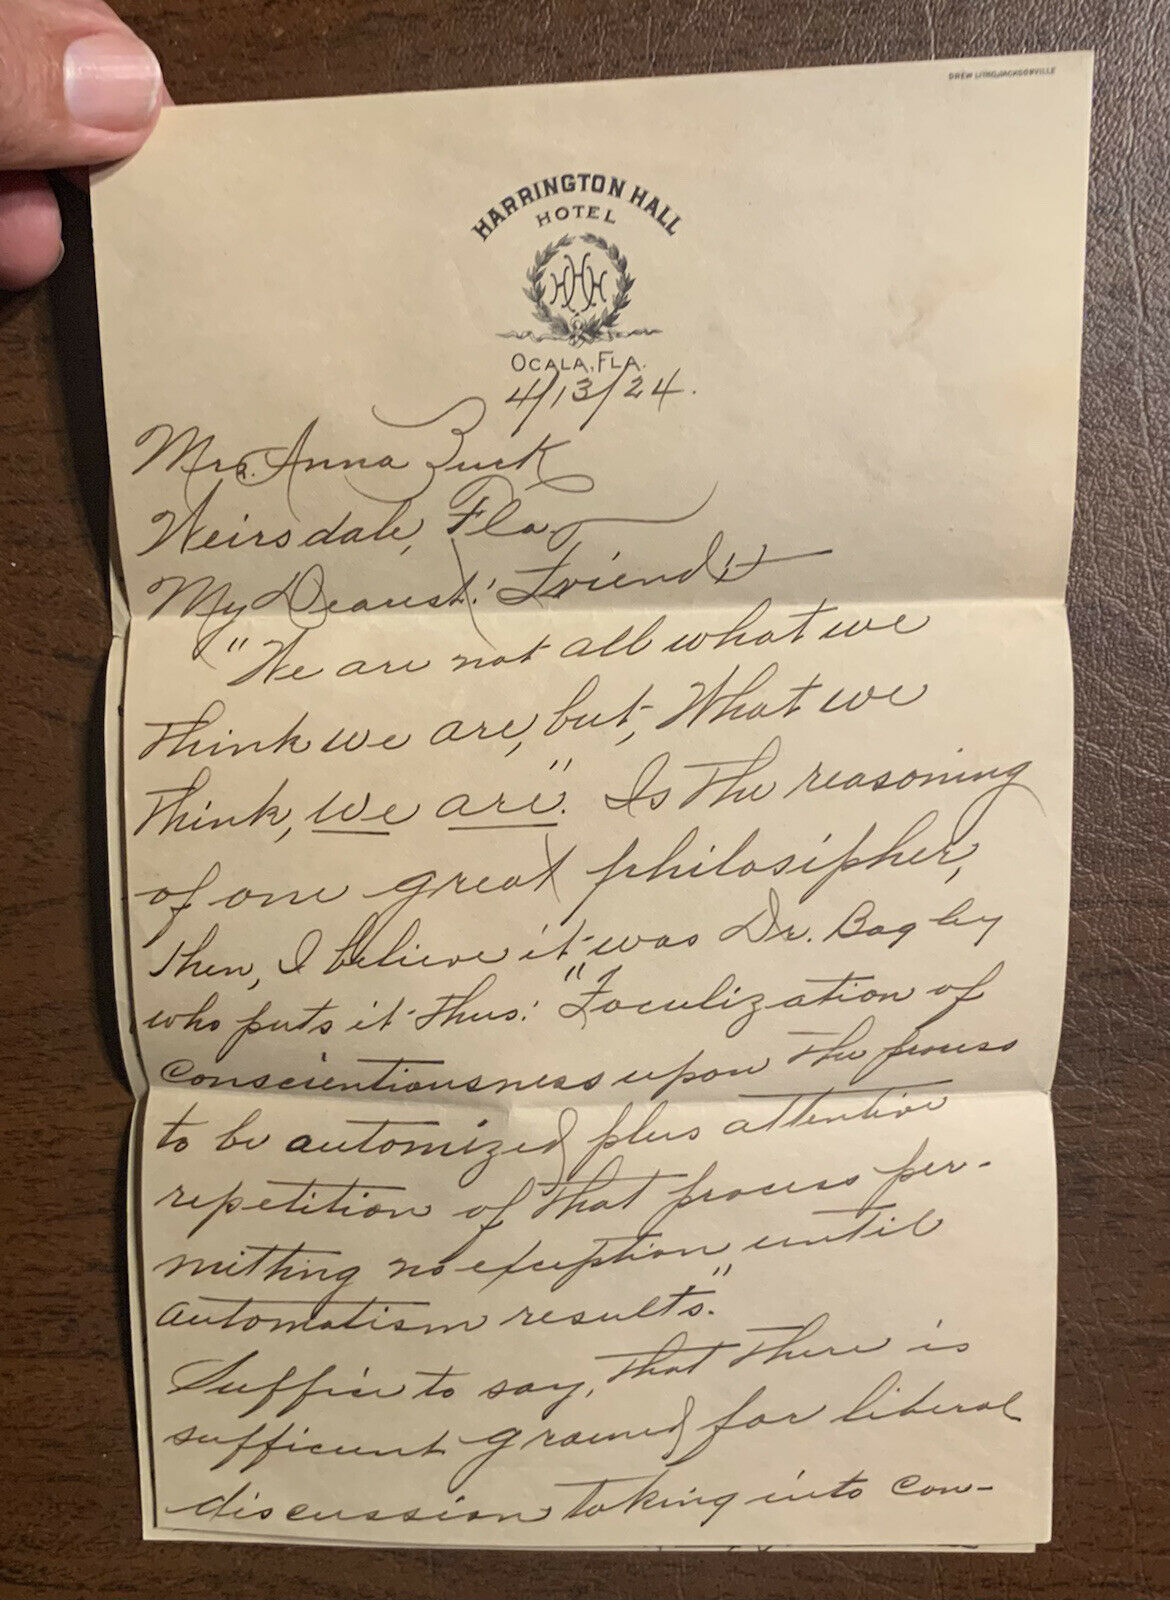 DREW LITHO. JACKSONVILLE
HARRINGTON HALL
HOTEL
HHH
OCALA, FLA.
4/13/24.
Mrs. Anna Zuck
Weirsdale, Fla.
My Dearest Friend:
"We are not all what we
think we are, but, What we
think, we are". Is the reasoning
of one great philosipher,
Then, I believe it was Dr. Bagley
who puts it thus: "Foculization of
Conscientiousness upon the process
to be automized plus attentive
repetition of that process per-
mitting no exception until
automatism results."
Suffice to say, that there is
sufficient ground for liberal
discussion taking into con-